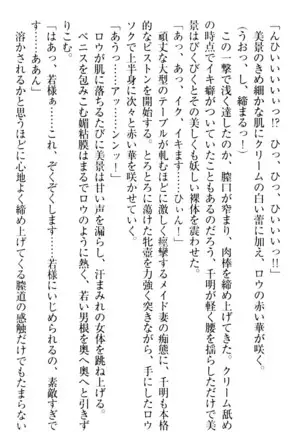 「んひぃぃぃぃいっ!? ひっ、ひっ、ひぃぃぃっ」
美景のきめ細かな肌にクリームの白い蕾に加え、ロウの赤い華が咲く。
(うおっ、し、締まるっ!)
この一撃で浅く達したのか、膣口が窄まり、肉棒を締め上げてきた。クリーム舐めの時点でイキ癖がついていたこともあるのだろう、千明が軽く腰を揺らしただけで美景はびくびくとその美しくも妖しい裸体を震わせた。
「あっ、あっ、イク、イキます……ひぃん!」
頑丈な大型のテーブルが軋むほどに激しく痙攣するメイド妻の痴態に、千明も本格的なピストンを開始する。とろとろに蕩けた牝壺を力強く突きながら、手にしたロウソクで上半身に次々と赤い華を咲かせていく。
「あうっ……アッ……シンッ!」
ロウが肌に落ちるたびに美景は甘い声を漏らし、汗まみれの女体を跳ね上げる。ペニスを包みこむ媚粘膜はまるでロウのように熱く、若い男根を奥へ奥へと引きずりこむ。
「はあっ、若様ぁ……これ、ぞくぞくします……若様にいじめられるの、素敵すぎです……ああん」
溶かされるかと思うほどに心地よく締め上げてくる膣道の感触だけでもたまらない